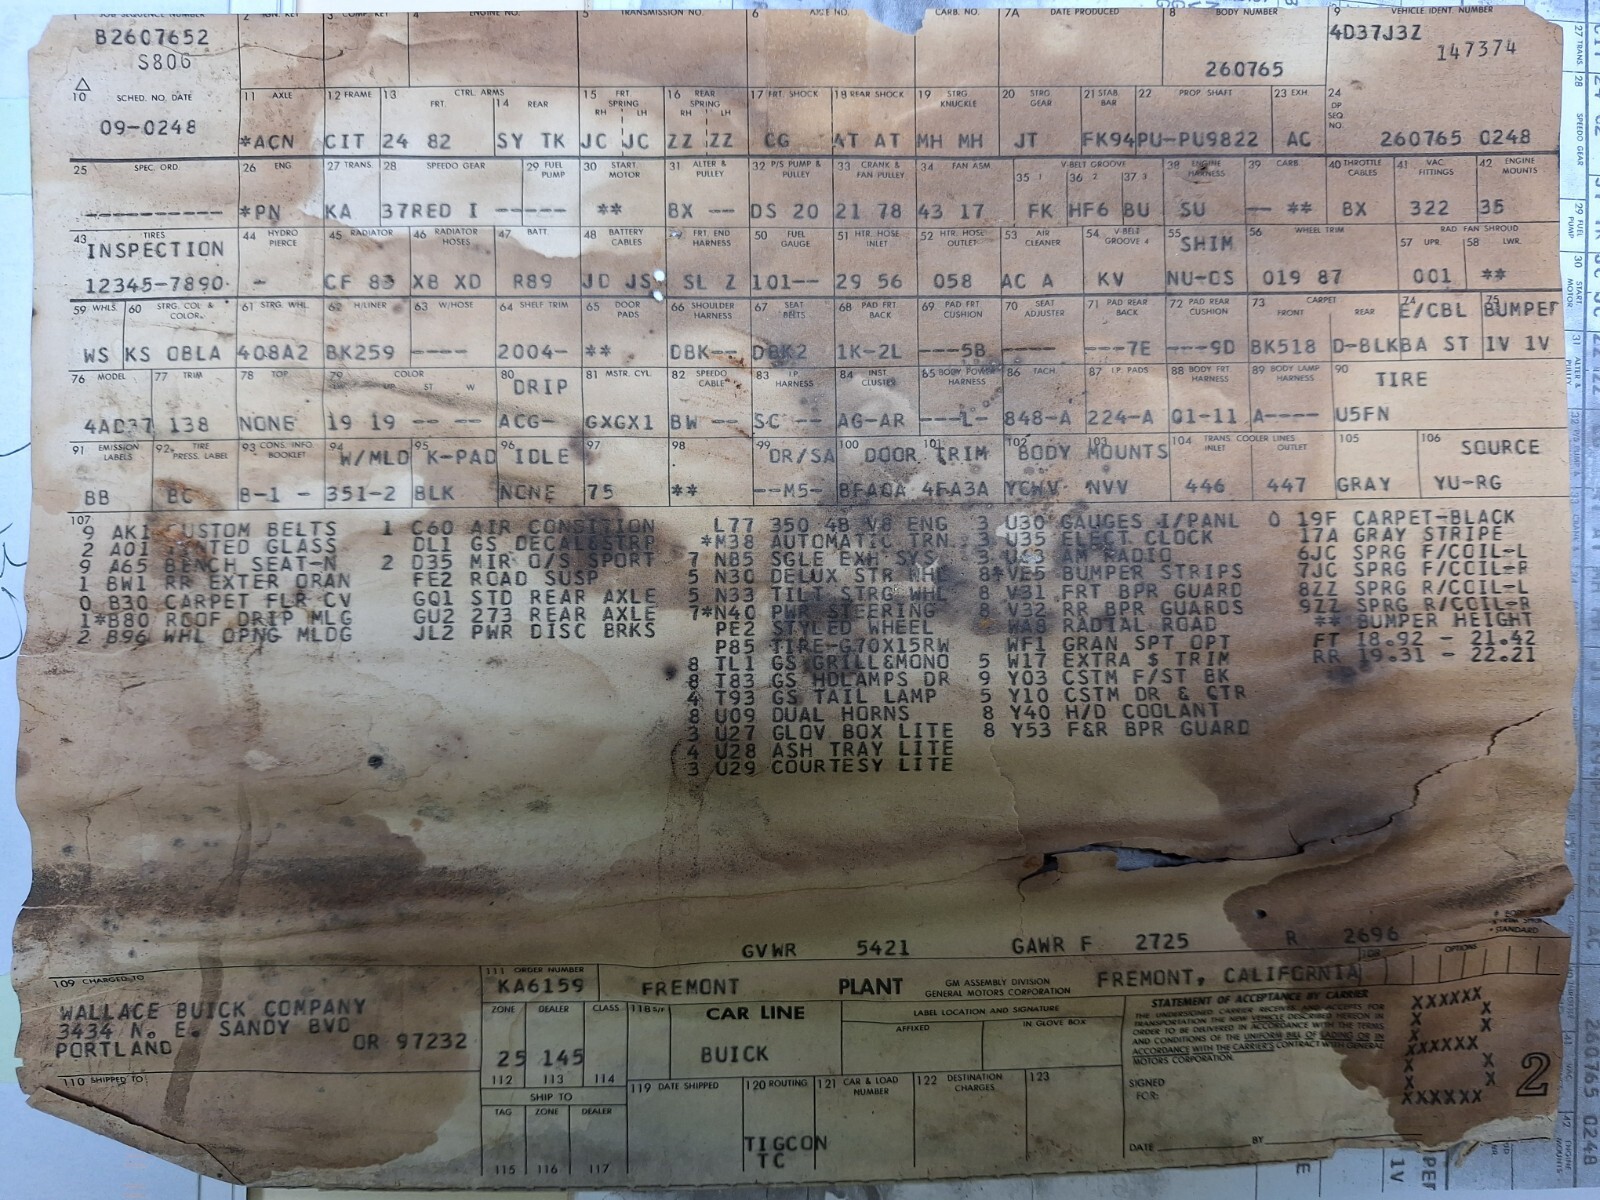 1 JOB SEQUENCE NUMBER 2 IGN. KEY 3 COMP. KEY 4 ENGINE NO. 5 TRANSMISSION NO. 6 AXLE NO. CARB. NO. 7A DATE PRODUCED 8 BODY NUMBER 9 VEHICLE IDENT. NUMBER
B2607652 4D37J3Z
S806 260765 147374
10 SCHED. NO. DATE 11 AXLE 12 FRAME 13 CTRL ARMS FRT. 14 REAR 15 FRT SPRING RH LH 16 REAR SPRING RH LH 17 FRT. SHOCK 18 REAR SHOCK 19 STRG. KNUCKLE 20 STRG GEAR 21 STAB. BAR 22 PROP SHAFT 23 EXH 24 DP SEQ NO.
09-0248 *ACN CIT 24 82 SY TK JC JC ZZ ZZ CG AT AT MH MH JT FK94PU-PU9822 AC 260765 0248
25 SPEC. ORD 26 ENG 27 TRANS. 28 SPEEDO GEAR 29 FUEL PUMP 30 START. MOTOR 31 ALTER & PULLEY 32 P/S PUMP & PULLEY 33 CRANK & FAN PULLEY 34 FAN ASM V-BELT GROOVE 35 1 36 2 37 3 38 ENGINE HARNESS 39 CARB. 40 THROTTLE CABLES 41 VAC. FITTINGS 42 ENGINE MOUNTS
---------- *PN KA 37RED I ----- ** BX -- DS 20 21 78 43 17 FK HF6 BU SU -- ** BX 322 35
43 TIRES 44 HYDRO PIERCE 45 RADIATOR 46 RADIATOR HOSES 47 BATT. 48 BATTERY CABLES 49 FRT. END HARNESS 50 FUEL GAUGE 51 HTR. HOSE INLET 52 HTR. HOSE OUTLET 53 AIR CLEANER 54 V-BELT GROOVE 4 55 SHIM 56 WHEEL TRIM RAD FAN SHROUD 57 UPR. 58 LWR.
INSPECTION
12345-7890 - CF 83 XB XD R89 JD JS SL Z 101-- 29 56 058 AC A KV NU-OS 019 87 001 **
59 WHLS. 60 STRG. COL & COLOR 61 STRG. WHL. 62 H/LINER 63 W/HOSE 64 SHELF TRIM 65 DOOR PADS 66 SHOULDER HARNESS 67 SEAT BELTS 68 PAD FRT BACK 69 PAD FRT CUSHION 70 SEAT ADJUSTER 71 PAD REAR BACK 72 PAD REAR CUSHION 73 CARPET FRONT REAR 74 E/CBL 75 BUMPER
WS KS OBLA 408A2 BK259 ---- 2004- ** DBK-- DBK2 1K-2L ---5B ---- ---7E ---9D BK518 D-BLKBA ST IV IV
76 MODEL 77 TRIM 78 TOP 79 COLOR LW. UP ST W 80 DRIP 81 MSTR. CYL. 82 SPEEDO CABLE 83 I.P. HARNESS 84 INST CLUSTER 85 BODY POWER HARNESS 86 TACH. 87 I.P. PADS 88 BODY FRT HARNESS 89 BODY LAMP HARNESS 90 TIRE
4AD37 138 NONE 19 19 -- -- ACG- GXGX1 BW -- SC -- AG-AR ---L- 848-A 224-A 01-11 A---- U5FN
91 EMISSION LABELS 92 TIRE PRESS. LABEL 93 CONS. INFO BOOKLET 94 W/MLD 95 K-PAD 96 IDLE 97 98 99 DR/SA 100 DOOR 101 TRIM 102 BODY 103 MOUNTS 104 TRANS. COOLER LINES INLET OUTLET 105 106 SOURCE
BB BC B-1 - 351-2 BLK NONE 75 ** --M5- BFAOA 4FA3A YCHV NVV 446 447 GRAY YU-RG
107
9 AK1 CUSTOM BELTS 1 C60 AIR CONDITION L77 350 4B V8 ENG 3 U30 GAUGES I/PANL 0 19F CARPET-BLACK
2 A01 TINTED GLASS DL1 GS DECAL&STRP *M38 AUTOMATIC TRN 3 U35 ELECT CLOCK 17A GRAY STRIPE
9 A65 BENCH SEAT-N 2 D35 MIR O/S SPORT 7 N85 SGLE EXH SYS 3 U63 AM RADIO 6JC SPRG F/COIL-L
1 BW1 RR EXTER ORAN FE2 ROAD SUSP 5 N30 DELUX STR WHL 8*VE5 BUMPER STRIPS 7JC SPRG F/COIL-R
0 B30 CARPET FLR CV GQ1 STD REAR AXLE 5 N33 TILT STRG WHL 8 V31 FRT BPR GUARD 8ZZ SPRG R/COIL-L
1*B80 ROOF DRIP MLG GU2 273 REAR AXLE 7*N40 PWR STEERING 8 V32 RR BPR GUARDS 9ZZ SPRG R/COIL-R
2 B96 WHL OPNG MLDG JL2 PWR DISC BRKS PE2 STYLED WHEEL WA8 RADIAL ROAD ** BUMPER HEIGHT
P85 TIRE-G70X15RW WF1 GRAN SPT OPT FT 18.92 - 21.42
8 TL1 GS GRILL&MONO 5 W17 EXTRA $ TRIM RR 19.31 - 22.21
8 T83 GS HDLAMPS DR 9 Y03 CSTM F/ST BK
4 T93 GS TAIL LAMP 5 Y10 CSTM DR & CTR
8 U09 DUAL HORNS 8 Y40 H/D COOLANT
3 U27 GLOV BOX LITE 8 Y53 F&R BPR GUARD
4 U28 ASH TRAY LITE
3 U29 COURTESY LITE
GVWR 5421 GAWR F 2725 R 2696
STANDARD
108 OPTIONS
109 CHARGED TO 111 ORDER NUMBER
KA6159 FREMONT PLANT GM ASSEMBLY DIVISION GENERAL MOTORS CORPORATION FREMONT, CALIFORNIA
WALLACE BUICK COMPANY
3434 N. E. SANDY BVD
PORTLAND OR 97232
ZONE DEALER CLASS 118 CAR LINE LABEL LOCATION AND SIGNATURE
AFFIXED IN GLOVE BOX
25 145 BUICK
112 113 114
STATEMENT OF ACCEPTANCE BY CARRIER
THE UNDERSIGNED CARRIER RECEIVES AND ACCEPTS FOR
TRANSPORTATION THE NEW VEHICLE DESCRIBED HEREON IN
ORDER TO BE DELIVERED IN ACCORDANCE WITH THE TERMS
AND CONDITIONS OF THE UNIFORM BILL OF LADING OR IN
ACCORDANCE WITH THE CARRIER'S CONTRACT WITH GENERAL
MOTORS CORPORATION.
SIGNED
FOR:
DATE BY
XXXXXX
X X
X X
XXXXXX
X X
X X
XXXXXX
2
110 SHIPPED TO
SHIP TO
TAG ZONE DEALER
115 116 117
119 DATE SHIPPED 120 ROUTING 121 CAR & LOAD NUMBER 122 DESTINATION CHARGES 123
TIGCON
TC